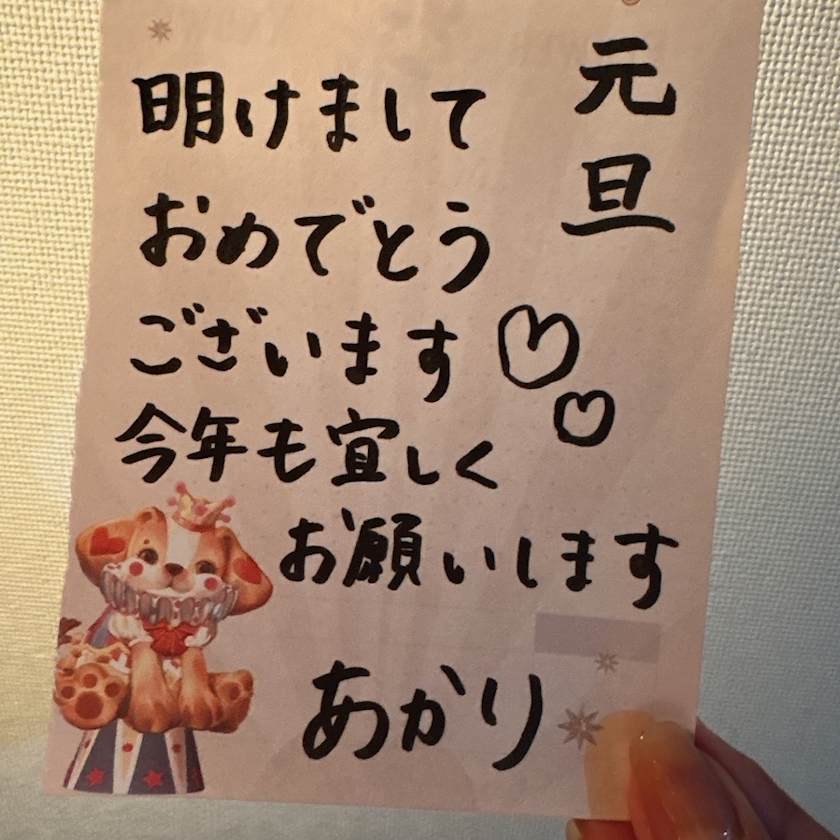 元旦
明けまして
おめでとう
ございます♡♡
今年も宜しく
お願いします
あかり